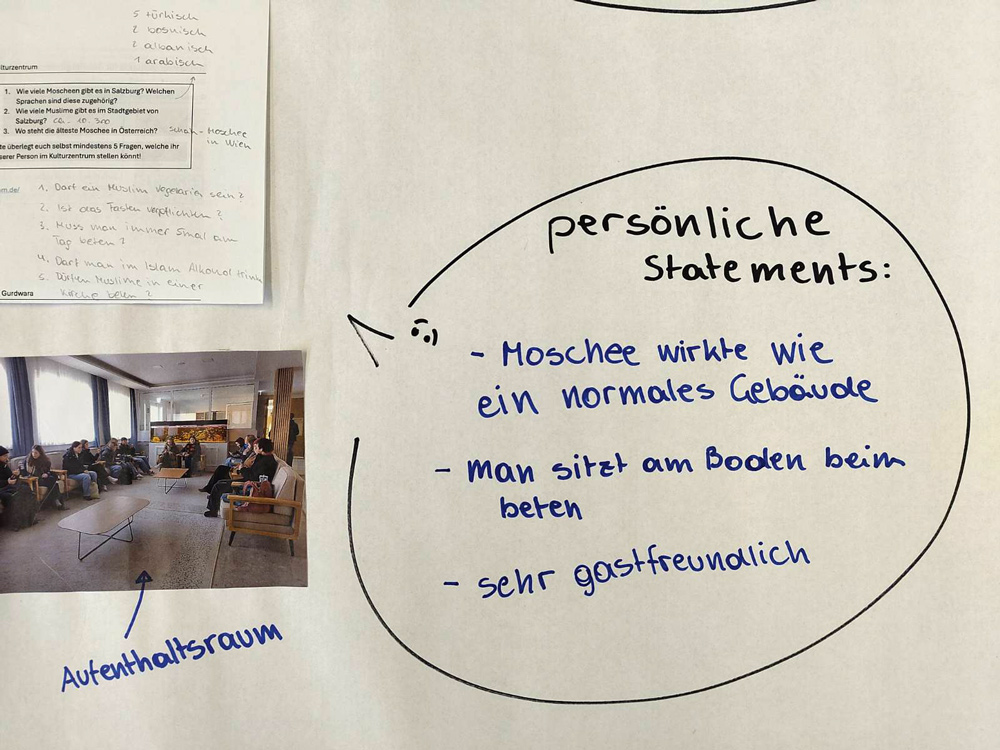 5 türkisch
2 bosnisch
2 albanisch
1 arabisch
lturzentrum
1. Wie viele Moscheen gibt es in Salzburg? Welchen
Sprachen sind diese zugehörig?
2. Wie viele Muslime gibt es im Stadtgebiet von
Salzburg? ca. 10.300
3. Wo steht die älteste Moschee in Österreich? Schah-Moschee
in Wien
te überlegt euch selbst mindestens 5 Fragen, welche ihr
serer Person im Kulturzentrum stellen könnt!
m.de/
1. Darf ein Muslim Vegetarier sein?
2. Ist das Fasten verpflichten?
3. Muss man immer 5mal am
Tag beten?
4. Darf man im Islam Alkohol trink
5. Dürfen Muslime in einer
Kirche beten?
Gurdwara
persönliche
Statements:
- Moschee wirkte wie
ein normales Gebäude
- man sitzt am Boden beim
beten
- sehr gastfreundlich
Aufenthaltsraum